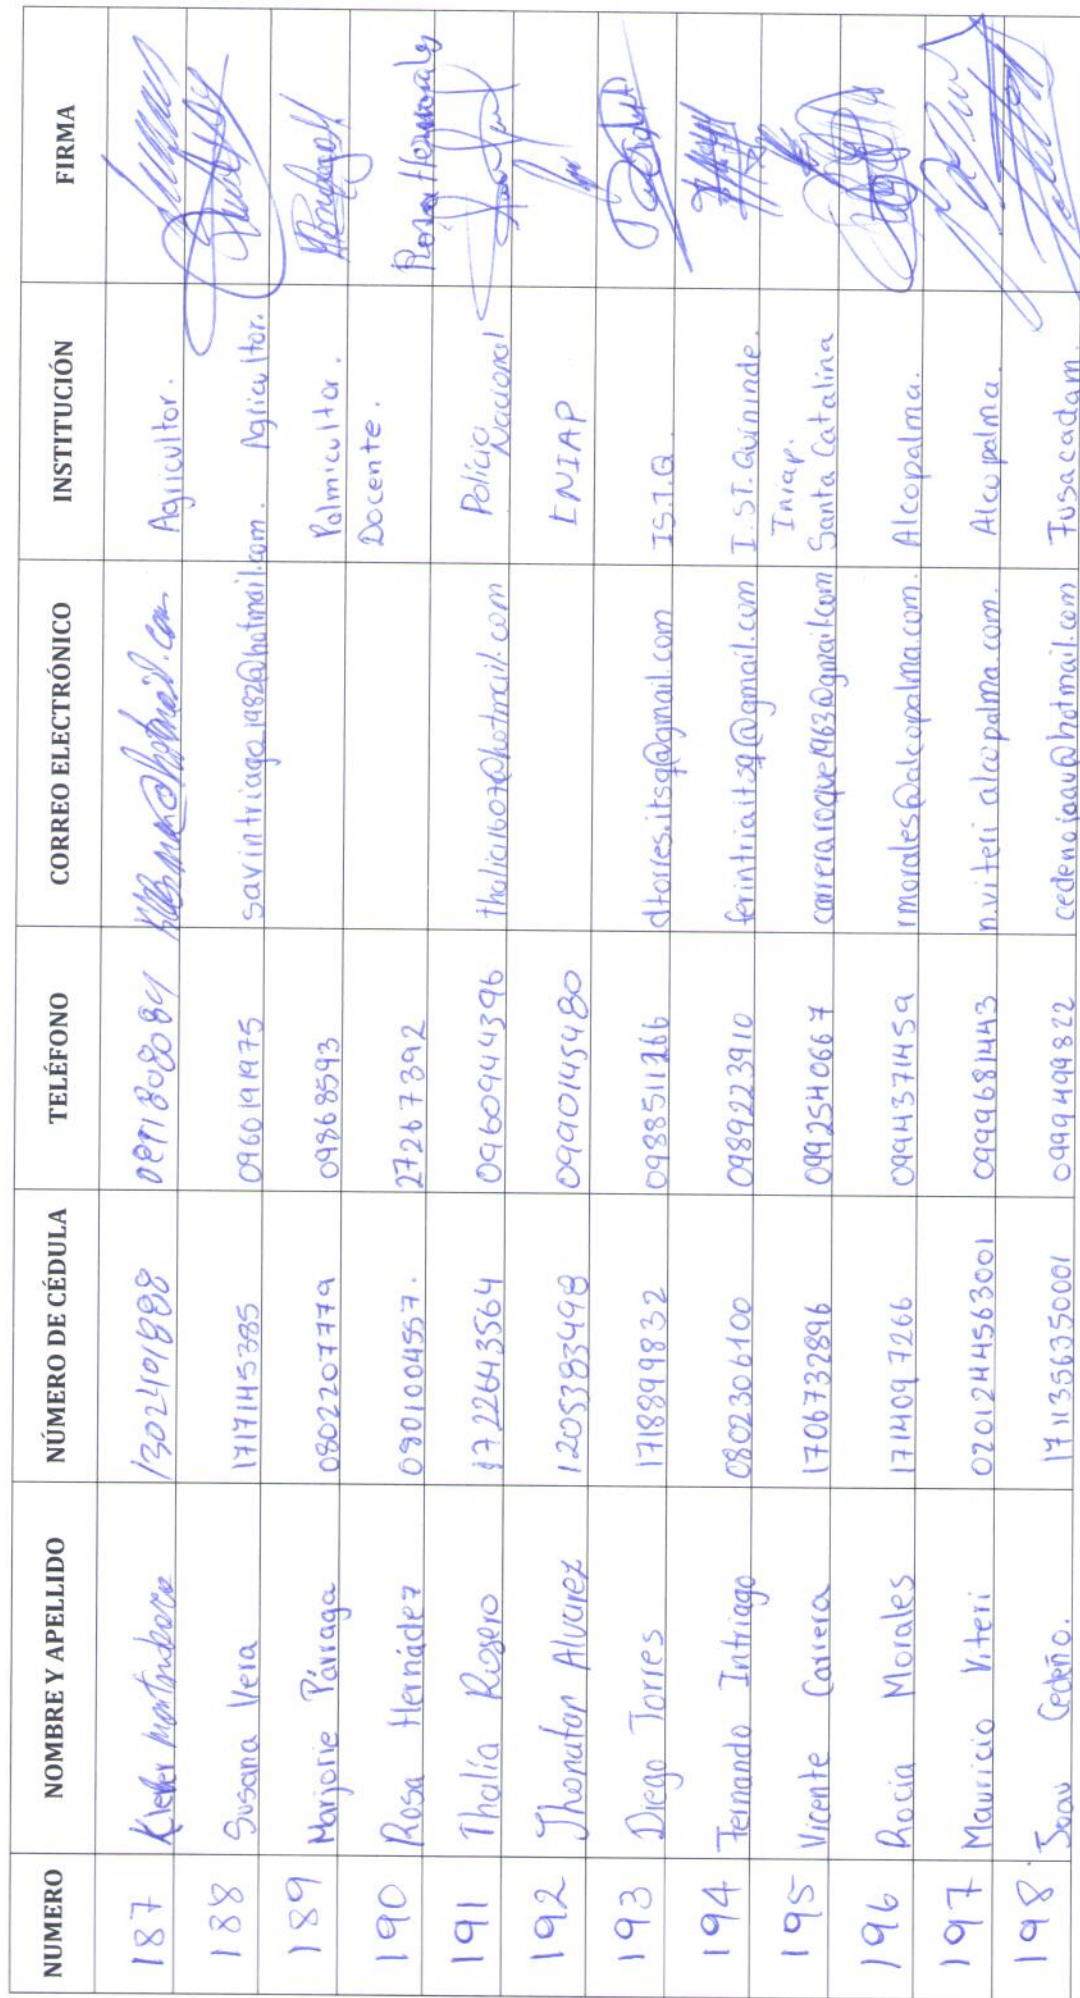 NUMERO NOMBRE Y APELLIDO NÚMERO DE CÉDULA TELÉFONO CORREO ELECTRÓNICO INSTITUCIÓN FIRMA
187 Klever 1302401888 Agricultor.
188 Susana Vera 1717145385 0960191975 savintriago1982@hotmail.com. Agricultor.
189 Marjorie Párraga 0802207779 09868593 Palmicultor.
190 Rosa Hernádez 0801004557. 272673392 Docente. Rosa Hernández
191 Thalía Rosero 1722643564 0960944396 thalia1607@hotmail.com Policia Nacional
192 Jhonatan Alvarez 1205383498 0990145480 INIAP
193 Diego Torres 1718899832 0988511266 dtorres.itsq@gmail.com I.S.T.Q.
194 Fernando Intriago 0802306100 0989223910 ferintriaitsq@gmail.com I.ST. Quininde.
195 Vicente Carrera 1706732896 0992540667 carreraroque1963@gmail.com Iniap. Santa Catalina
196 Rocia Morales 1714097266 0994371459 rmorales@alcopalma.com. Alcopalma.
197 Mauricio Viteri 0201244563001 0999681443 n.viteri alcopalma.com. Alcopalma.
198. Joau Cedeño. 1711356350001 0999499822 cedenojoau@hotmail.com Fusacadam.